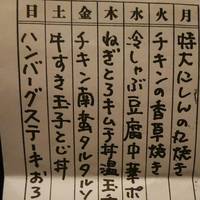 日土金木水火月
特大にしんの丸焼き
チキンの香草焼き
冷しゃぶ豆腐中華ポ
ねぎとろキムチ丼温玉
チキン南蛮タルタルソ
牛すき玉子とじ丼
ハンバーグステーキおろ